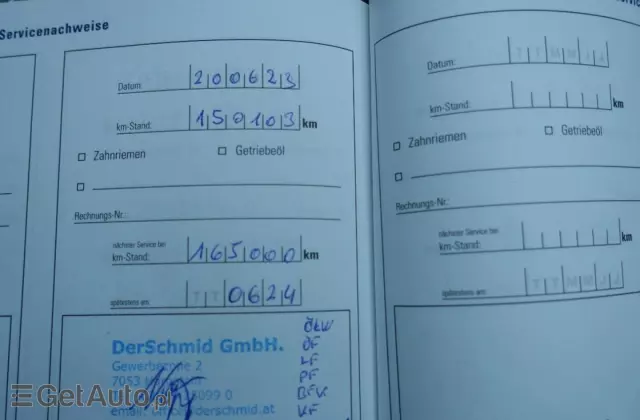 Servicenachweise
Datum: 200623
km-Stand: 150103 km
Zahnriemen Getriebeöl
Rechnungs-Nr.:
nächster Service bei
km-Stand: 165000 km
spätestens am: TT 0624
DerSchmid GmbH.
Gewerbe 2
7053
099 0
email: derschmid.at
ÖLW
ÖF
LF
PF
BFK
KF
Datum: TTMMJJ
km-Stand: km
Zahnriemen Getriebeöl
Rechnungs-Nr.:
nächster Service bei
km-Stand: km
spätestens am: TTMMJJ
GetAuto